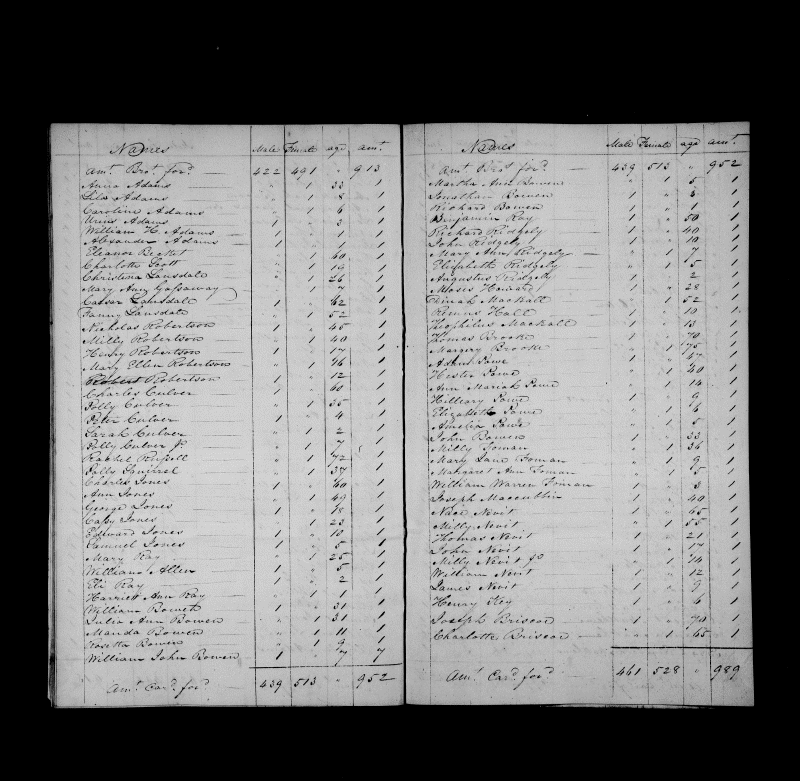 Names Male Female age amt.
Amt. Brot. for'd. 422 491 " 913
Anna Adams " 1 33 1
Lila Adams " 1 8 1
Caroline Adams " 1 6 1
Adams 1 " 3 1
William H. Adams 1 "
Alexander Adams 1 " 1 1
Eleanor Becket " 1 60 1
Charlotte Scott " 1 19 1
Christina Lansdale " 1 26 1
Mary Ann Gassaway " 1
Caesar Lansdale 1 " 62 1
Fanny Lansdale " 1 52 1
Nicholas Robertson 1 " 45 1
Milly Robertson " 1 40 1
Henry Robertson 1 " 17 1
Mary Ellen Robertson " 1 16 1
Robert Robertson 1 " 12 1
Charles Culver 1 " 60 1
Polly Culver " 1 35 1
Peter Culver 1 " 4 1
Sarah Culver " 1 2 1
Polly Culver Jr. " 1 7 1
Rachel Russell " 1 72 1
Polly Squirrel " 1 37 1
Charles Jones 1 " 60 1
Ann Jones " 1 49 1
George Jones 1 " 18 1
Jones " 1 23 1
Edward Jones 1 " 10 1
Samuel Jones 1 " 5 1
Mary Ray " 1 25 1
William Allen 1 " 5 1
Eli Ray 1 " 2 1
Harriett Ann Ray 1 1 1
William Bowen 1 " 31 1
Julia Ann Bowen " 1 31 1
Manda Bowen " 1 11 1
Rosetta Bowen " 1 9 1
William John Bowen 1 " 7 7
Amt. Card. for'd. 439 513 " 952
Names Male Female age amt.
Amt. Brot. for'd. 439 513 " 952
Martha Ann Bowen " 1 5 1
Jonathan Bowen 1 " 3 1
Richard Bowen 1 " 1 1
Benjamin Ray 1 " 50 1
Richard Ridgely 1 " 40 1
John Ridgely 1 " 10 1
Mary Ann Ridgely " 1 7 1
Elizabeth Ridgely " 1 5 1
Augustus Ridgely 1 " 2 1
Moses Howard 1 " 28 1
Dinah Mackall " 1 52 1
Remus Hall 1 " 10 1
Theophilus Mackall 1 " 13 1
Thomas Brooke 1 " 70 1
Margery Brooke " 1 75 1
Adam Powe 1 " 47 1
Hester Powe " 1 40 1
Ann Mariah Powe " 1 14 1
Hilleary Powe 1 " 9 1
Elizabeth Powe " 1 6 1
Amelia Powe " 1 5 1
John Bowen 1 " 33 1
Milly Toman " 1 36 1
Mary Jane Toman " 1 9 1
Margaret Ann Toman " 1 5 1
William Warren Toman 1 " 3 1
Joseph Maccubbin 1 " 40 1
Nace Nevit 1 " 65 1
Milly Nevit " 1 55 1
Thomas Nevit 1 " 21 1
John Nevit 1 " 17 1
Milly Nevit Jr " 1 14 1
William Nevit 1 " 12 1
James Nevit 1 " 9 1
Henry Key 1 " 6 1
Joseph Briscoe 1 " 70 1
Charlotte Briscoe " 1 65 1
Amt. Card. for'd 461 528 " 989